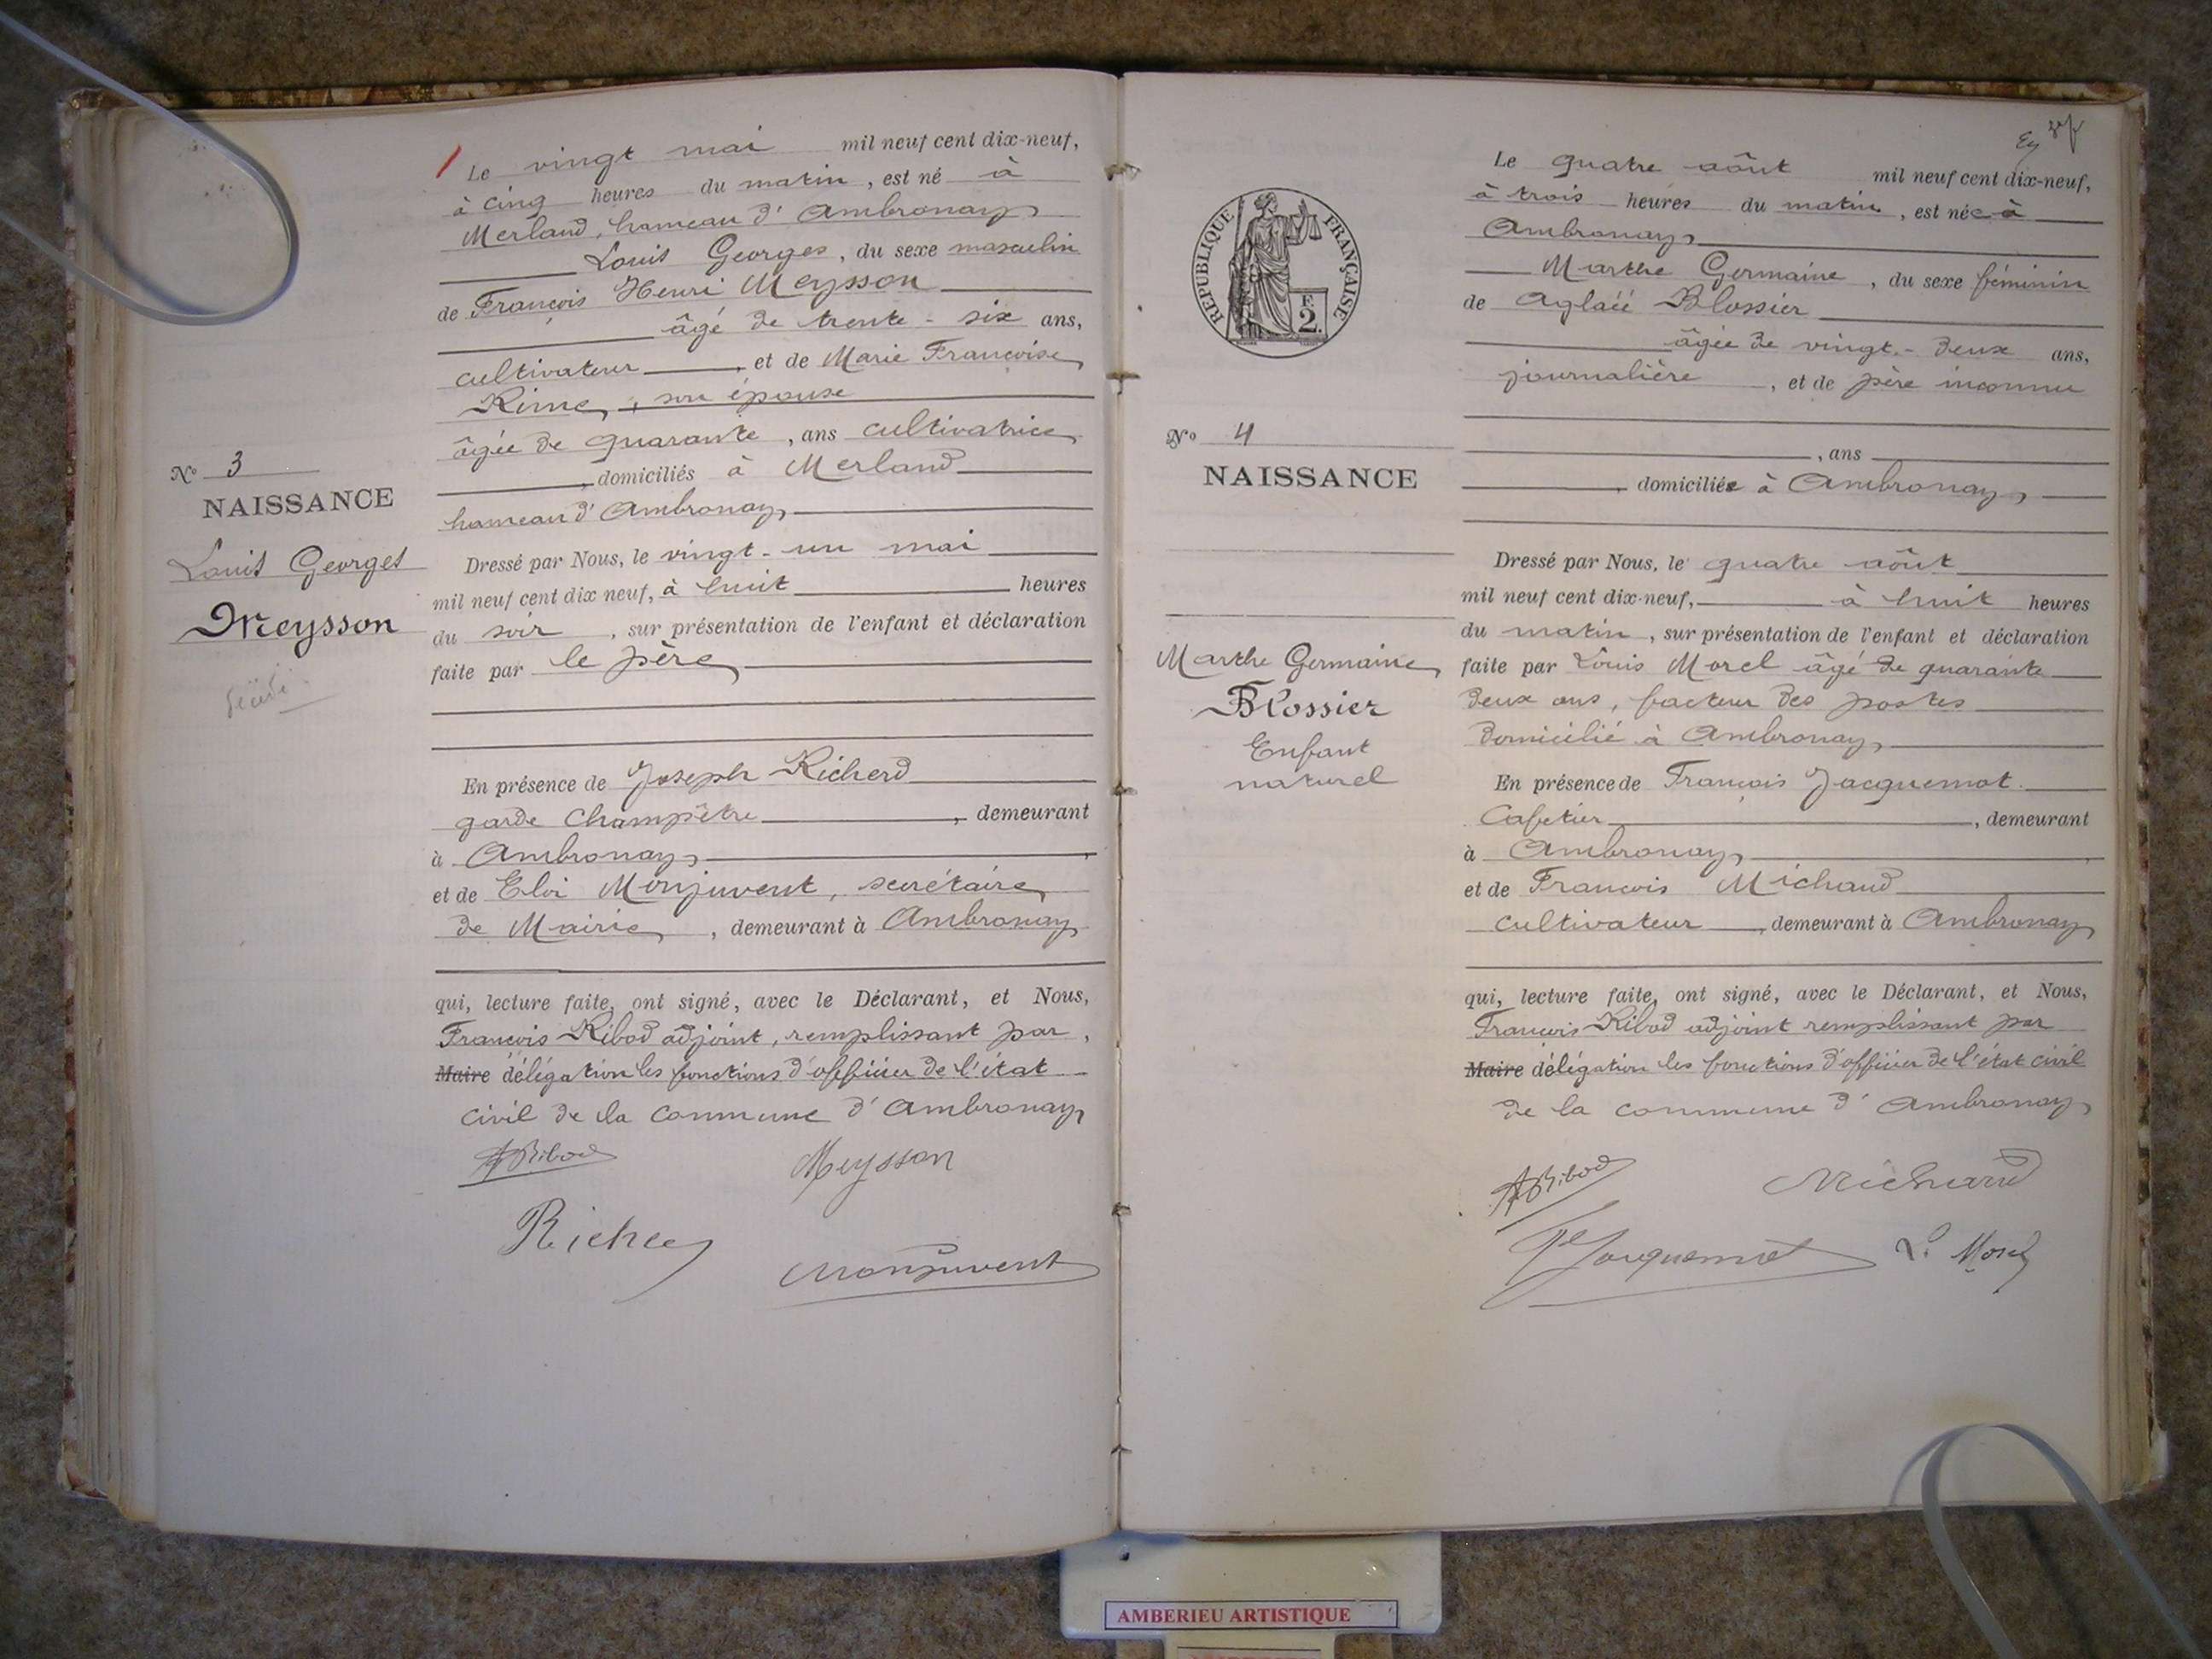 Le vingt mai mil neuf cent dix-neuf,
à cinq heures du matin, est né à
Merland, hameau d'Ambronay
Louis Georges, du sexe masculin
de François Henri Meysson
âgé de trente-six ans,
cultivateur, et de Marie Françoise
Rime, son épouse
âgée de quarante, ans cultivatrice
domiciliés à Merland
hameau d'Ambronay
N° 3
NAISSANCE
Louis Georges
Meysson
Dressé par Nous, le vingt-un mai
mil neuf cent dix neuf, à huit heures
du soir, sur présentation de l'enfant et déclaration
faite par le père
En présence de Joseph Richerd
garde Champêtre, demeurant
à Ambronay
et de Eloi Monjuvent, secrétaire
de Mairie, demeurant à Ambronay
qui, lecture faite, ont signé, avec le Déclarant, et Nous,
François Ribod adjoint, remplissant par
Maire délégation les fonctions d'officier de l'état
civil de la commune d'Ambronay
Ribod Meysson
Monjuvent
Le quatre août mil neuf cent dix-neuf,
à trois heures du matin, est née à
Ambronay
Marthe Germaine, du sexe féminin
de Aglaëé Blossier
âgée de vingt-deux ans,
journalière, et de père inconnu
, ans
domiciliée à Ambronay
RÉPUBLIQUE FRANÇAISE
F.
2.
N° 4
NAISSANCE
Marthe Germaine
Blossier
Enfant
naturel
Dressé par Nous, le quatre août
mil neuf cent dix-neuf, à huit heures
du matin, sur présentation de l'enfant et déclaration
faite par Louis Morel âgé de quarante
deux ans, facteur des postes
domicilié à Ambronay
En présence de François Jacquemot
Cafetier, demeurant
à Ambronay
et de François Michaud
cultivateur, demeurant à Ambronay
qui, lecture faite, ont signé, avec le Déclarant, et Nous,
François Ribod adjoint remplissant par
Maire délégation les fonctions d'officier de l'état civil
de la commune d'Ambronay
Ribod Michaud
Jacquemot L. Morel
AMBERIEU ARTISTIQUE